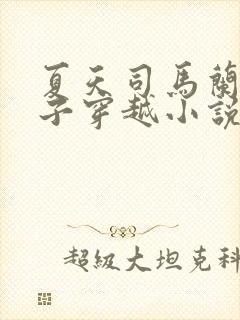 夏天司馬蘭
子穿越小說
超級大坦克科